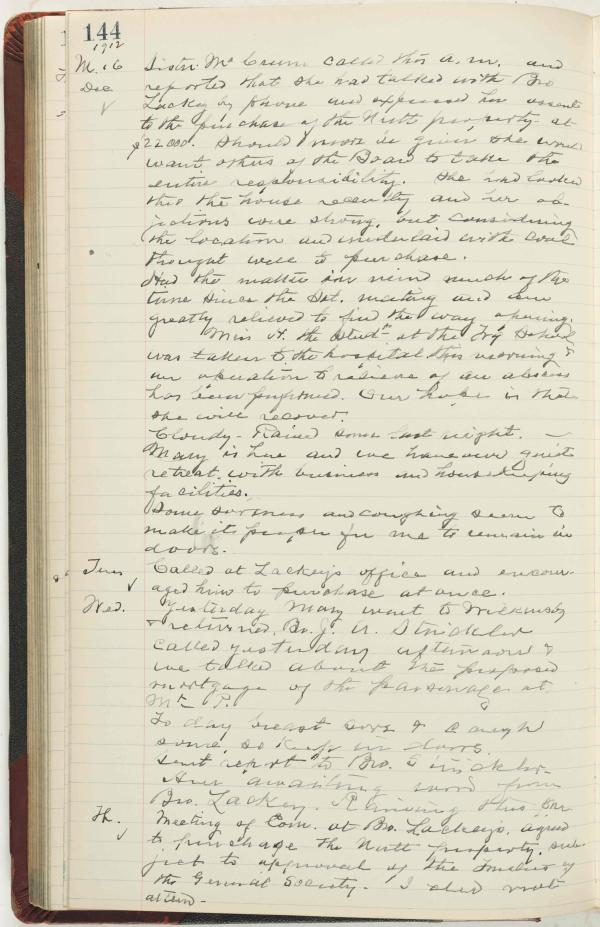 144
1912
M. 16 Sistr. Mc Crum called this a.m. and
Dec reported that she had talked with Bro
Lackey by phone and expressed her assent
to the purchase of the Nutt property at
$22 000. Should more be given she would
want others of the Board to take the
entire responsibility. She had looked
thro the house recently and her ob-
jections were strong, but considering
the location and underlaid with coal
thought well to purchase.
Had the matter on mind much of the
time since the Sat. meeting and am
greatly relieved to find the way opening.
Miss H. the studt. at the Trg School
was taken to the hospital this morning &
an operation to relieve of an abscess
has been performed. Our hope is that
she will recover.
Cloudy - Rained some last night.
Mary is here and we have our quiet
retreat with business and housekeeping
facilities.
Some soreness and coughing seem to
make it proper for me to remain in
doors.
Tues Called at Lackey's office and encour-
aged him to purchase at once.
Wed. Yesterday Mary went to Wilkinsbg
& returned. Bro. J. A. Strickler
called yesterday afternoon &
we talked about the proposed
mortgage of the parsonage at
Mt. P.
To day breast sore & cough
some, so keep in doors.
Sent report to Bro. Strickler.
Am awaiting word from
Bro. Lackey. Raining this
Th. Meeting of Com. at Bro. Lackeys, agreed
to purchase the Nutt property, sub-
ject to approval of the Trustees of
the General Society. I did not
atten-